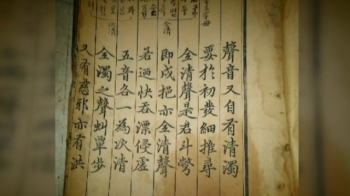 聲音又自有清濁
要於初發細推尋
全清聲是君斗彆
即戌挹亦全清聲
若迺快吞漂侵虛
五音各一為次清
全濁之聲虯覃步
又有慈邪亦有洪